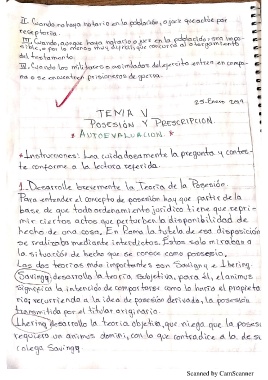 II. Cuando no haya notario en la población, o juez que actúe por
receptoria.
III. Cuando, aunque haya notario o juez en la población, sea impo-
sible, o por lo menos muy difícil, que concurran al otorgamiento
del testamento.
IV. Cuando los militares o asimilados del ejército entren en campa-
ña o se encuentren prisioneros de guerra.
25-Enero-2019
TEMA V
POSESIÓN Y PRESCRIPCIÓN.
* AUTOEVALUACIÓN. *
*Instrucciones: Lea cuidadosamente la pregunta y contes-
te conforme a la lectura referida.
1. Desarrolle brevemente la Teoría de la Posesión.
Para entender el concepto de posesión hay que partir de la
base de que todo ordenamiento jurídico tiene que repri-
mir ciertos actos que perturben la disponibilidad de
hecho de una cosa. En Roma la tutela de esa disposición
se realizaba mediante interdictos. Estos solo miraban a
la situación de hecho que se conoce como possesio.
Las dos teorías más importantes son Savigny e Ihering.
Savingy desarrollo la teoría subjetiva, para él, el animus
significa la intención de comportarse como lo haría el propieta
rio, recurriendo a la idea de posesión derivada, la posesión
transmitida por el titular originario.
Ihering desarrollo la teoría objetiva, que niega que la posesi
requiera un animus domini, con lo que contradice a la de su
colega Savingy
Scanned by CamScanner